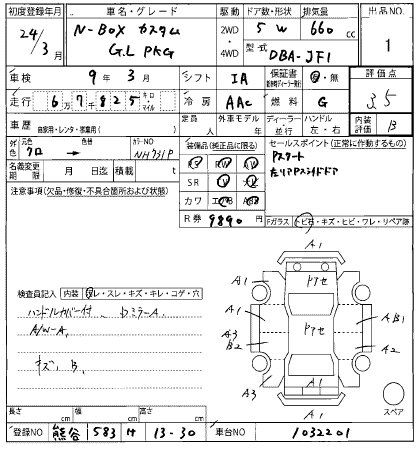 初度登録年月 車名・グレード 駆動 ドア数・形状 排気量 出品NO
24/3月 N-BOX カスタム G.L PKG 2WD・4WD 5 W 660 cc 1
型式 DBA-JF1
車検 9年 3月 シフト IA 保証書 有・無 評価点
走行 6 7 8 2 5 キロ マイル 冷房 AAC 燃料 G 3.5
車歴 自家用・レンタ・事業用( ) 定員 人 外車モデル 年 ディーラー・並行 ハンドル 左・右 内装評価 B
外色 元色 クロ → 色替 カラーNO NH731P
装備品(純正品に限る) セールスポイント(正常に作動するもの)
名義変更期限 月 日迄 積載 t
Pスタート
左リアPスライドドア
注意事項(欠品・修復・不具合箇所および状態)
SR
カワ
R券 9890 円
Fガラス トビ石・キズ・ヒビ・ワレ・リペア跡
検査員記入 内装 ヨゴレ・スレ・キズ・キレ・コゲ・穴
ハンドルカバー付
ドミラーA
A/W-A
キズ、B
A1
A1
A1
A1
A3
B2
A3
AB1
A2
A1
A1
Pアセ
Pアセ
スペア
長さ cm 幅 cm 高さ cm
登録NO 熊谷 583 サ 13-30 車台NO 1032201